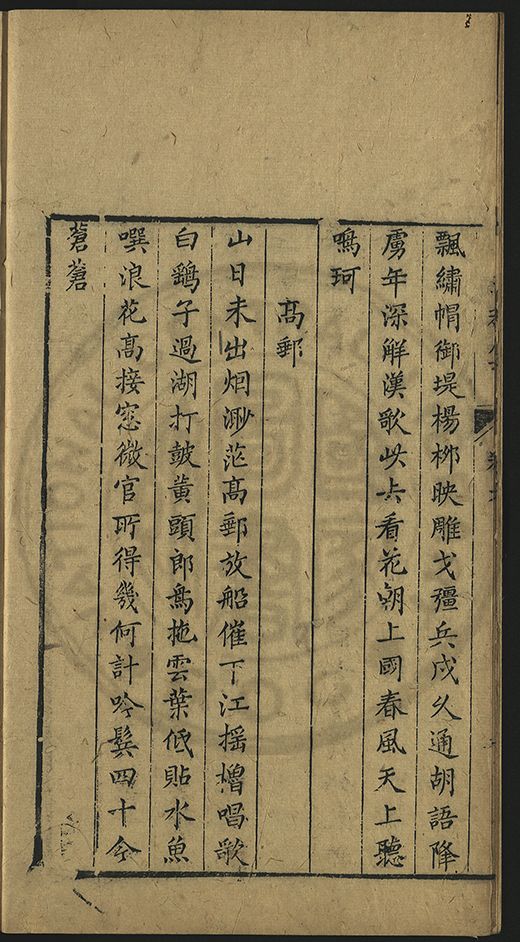 飄繡帽御堤楊桞映雕戈彊兵戍久通胡語降
虜年深觧漢歌此去看花朝上國春風天上聽
鳴珂
高郵
山日未出烟渺茫高郵放船催下江揺櫓唱歌
白鷂子過湖打皷黄頭郎鳥拖雲葉低貼水魚
噀浪花高接窓微官所得幾何計吟鬂四十今
蒼蒼